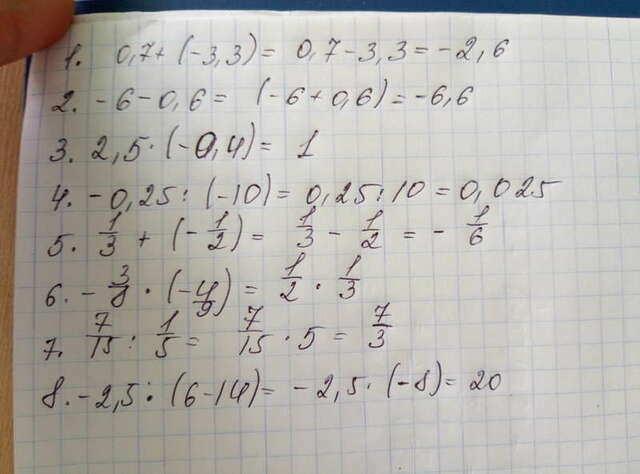 1. 0,7 + (-3,3) = 0,7 - 3,3 = -2,6
2. -6 - 0,6 = (-6 + 0,6) = -6,6
3. 2,5 · (-0,4) = 1
4. -0,25 : (-10) = 0,25 : 10 = 0,025
5. 1/3 + (-1/2) = 1/3 - 1/2 = -1/6
6. -3/8 · (-4/9) = 1/2 · 1/3
7. 7/15 : 1/5 = 7/15 · 5 = 7/3
8. -2,5 : (6 - 14) = -2,5 · (-8) = 20